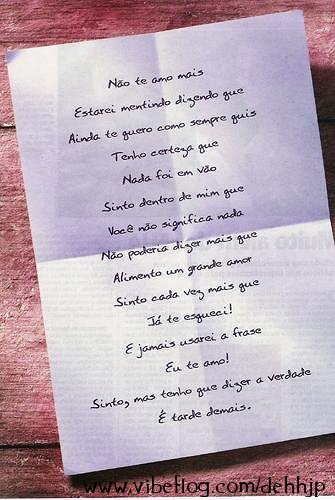 Não te amo mais
Estarei mentindo dizendo que
Ainda te quero como sempre quis
Tenho certeza que
Nada foi em vão
Sinto dentro de mim que
Você não significa nada
Não poderia dizer mais que
Alimento um grande amor
Sinto cada vez mais que
Já te esqueci!
E jamais usarei a frase
Eu te amo!
Sinto, mas tenho que dizer a verdade
É tarde demais.
www.vibeflog.com/dehhjp